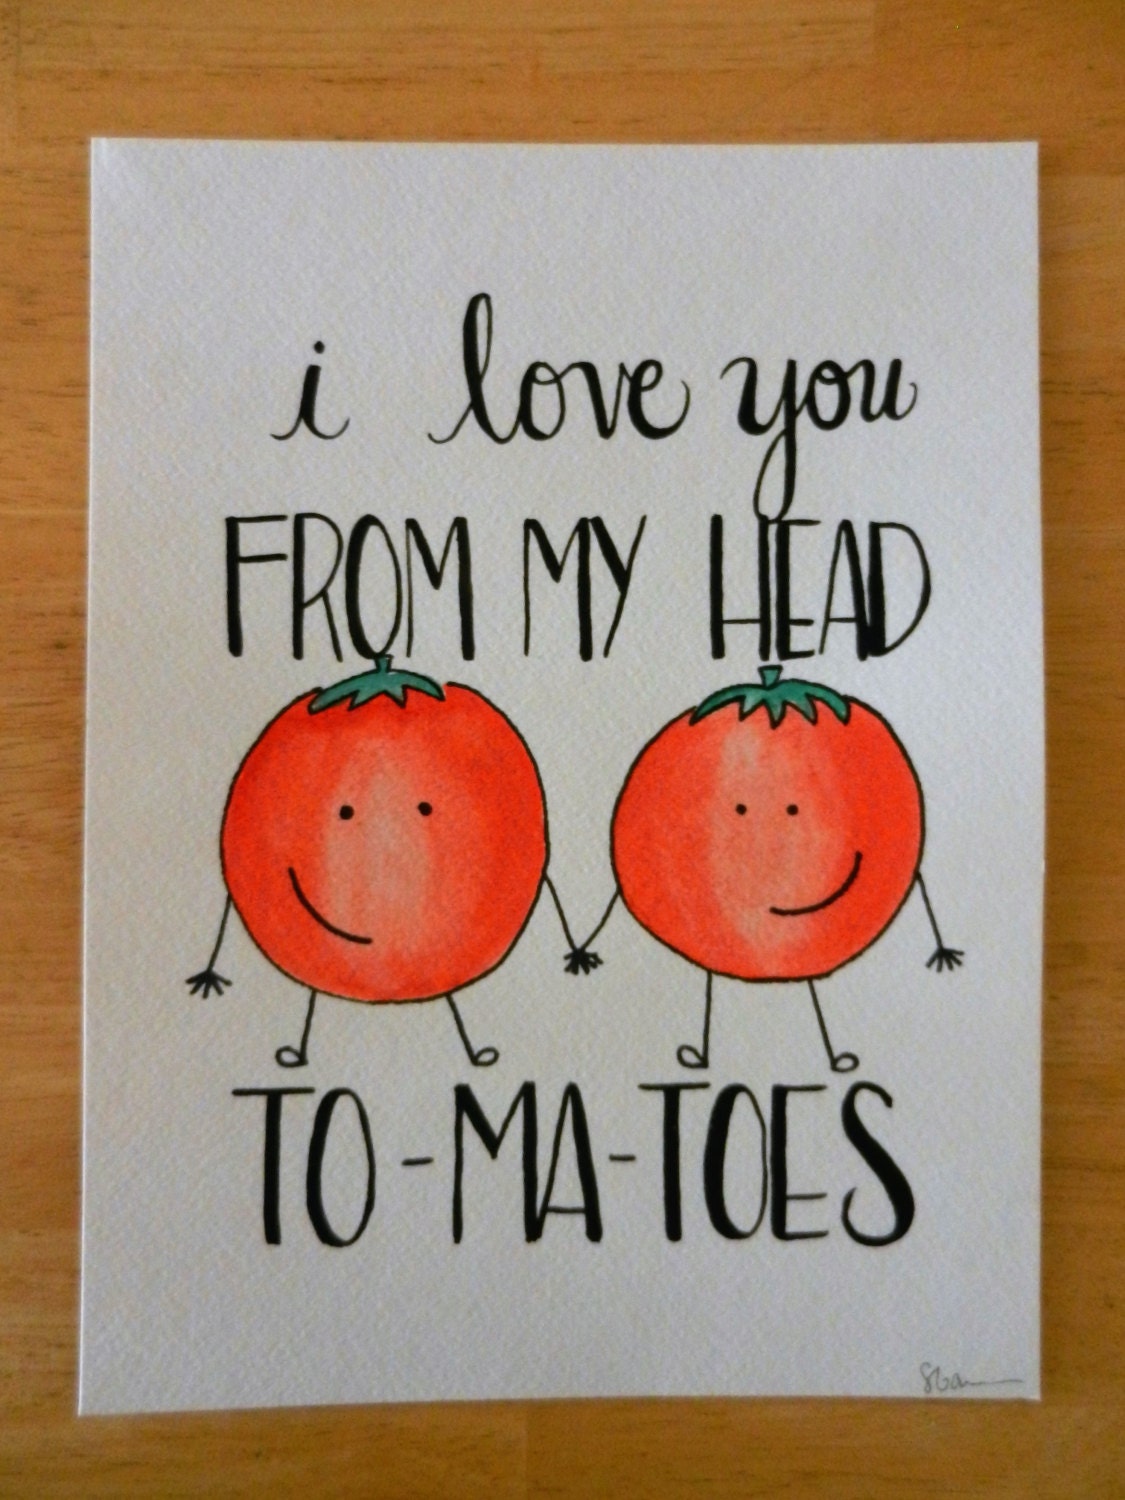 i love you
FROM MY HEAD
TO-MA-TOES